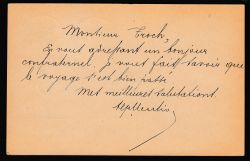 Monsieur Froch,
Je vous adressant un bonjour
confraternel, je vous fait savoir que
le voyage s'est bien passé
Mes meilleures salutations